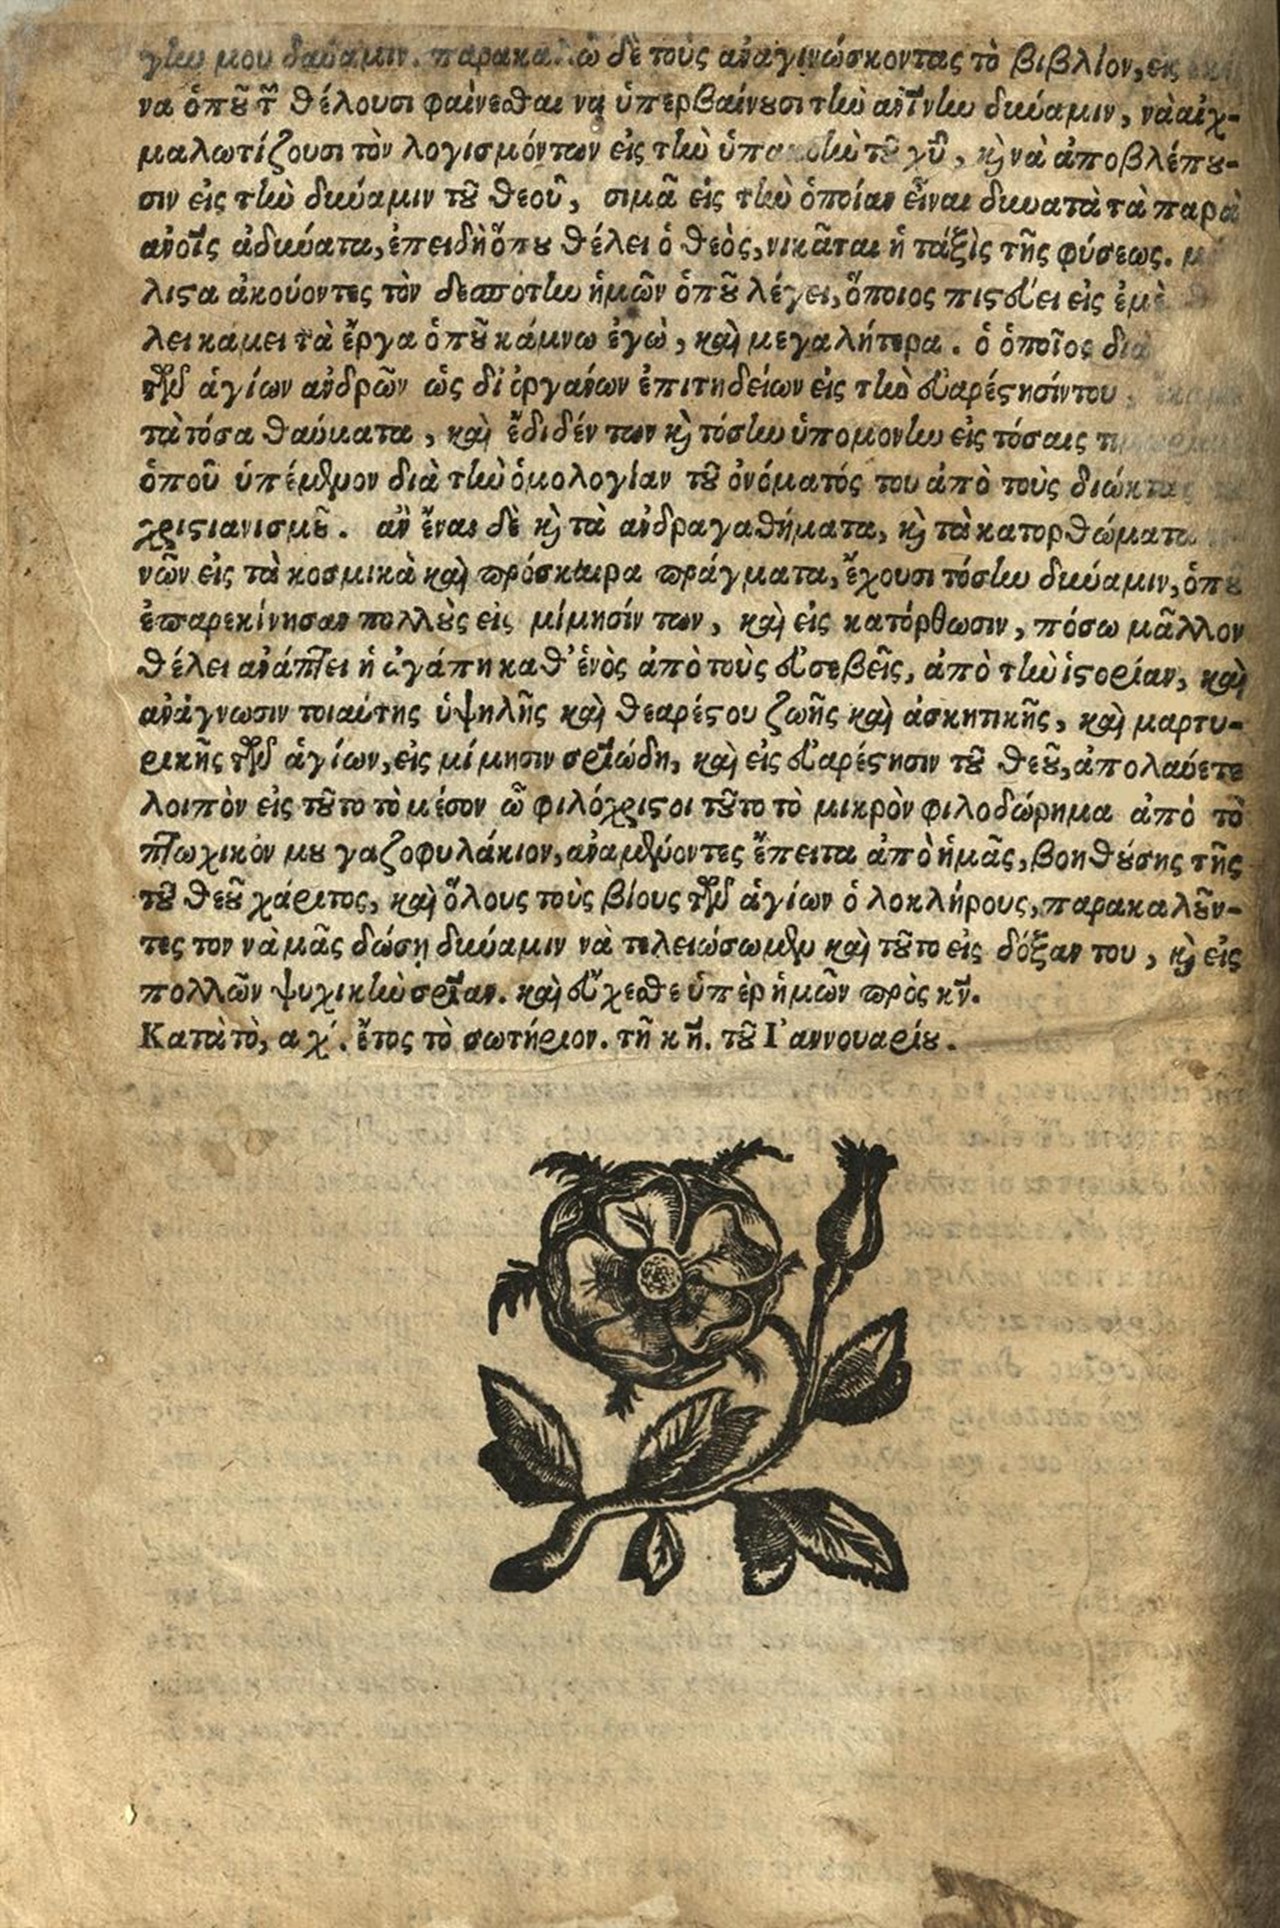 μου δύναμιν. παρακαλῶ δὲ τοὺς ἀναγινώσκοντας τὸ βιβλίον, εἰς
να ὁποῦ τῆ θέλουσι φαίνεσθαι νὰ ὑπερβαίνουσι τὴν ἀνίνην δύναμιν, νὰ αἰχ-
μαλωτίζουσι τὸν λογισμόντων εἰς τὴν ὑπακοὴν τοῦ χῦ, κὶ νὰ ἀποβλέπου-
σιν εἰς τὴν δύναμιν τοῦ θεοῦ, σιμᾶ εἰς τὴν ὁποίαν εἶναι δυνατὰ τὰ παρὰ
ἀνοῖς ἀδύνατα, ἐπειδὴ ὅπου θέλει ὁ θεὸς, νικᾶται ἡ τάξὶς τῆς φύσεως.
λιστα ἀκούοντες τὸν δεσπότην ἡμῶν ὁποῦ λέγει, ὅποιος πιστεύει εἰς ἐμὲ
λει κάμει τὰ ἔργα ὁποῦ κάμνω ἐγὼ, καὶ μεγαλήτερα. ὁ ὁποῖος διὰ
τῶν ἁγίων ἀνδρῶν ὡς δι' ὀργάνων ἐπιτηδείων εἰς τὴν εὐαρέστησίντου,
τὰ τόσα θαύματα, καὶ ἔδιδέν των κὶ τόσην ὑπομονὴν εἰς τόσαις
ὁποῦ ὑπέμενον διὰ τὴν ὁμολογίαν τοῦ ὀνόματός του ἀπὸ τοὺς διώκτας
χριστιανισμοῦ. ἂν ἦναι δὲ κὶ τὰ ἀνδραγαθήματα, κὶ τὰ κατορθώματα
νῶν εἰς τὰ κοσμικὰ καὶ πρόσκαιρα πράγματα, ἔχουσι τόσην δύναμιν, ὁποῦ
ἐπαρεκίνησαν πολλοὺς εἰς μίμησίν των, καὶ εἰς κατόρθωσιν, πόσω μᾶλλον
θέλει ἀνάπτει ἡ ἀγάπη καθ' ἑνὸς ἀπὸ τοὺς εὐσεβεῖς, ἀπὸ τὴν ἱστορίαν, καὶ
ἀνάγνωσιν τοιαύτης ὑψηλῆς καὶ θεαρέστου ζωῆς καὶ ἀσκητικῆς, καὶ μαρτυ-
ρικῆς τῶν ἁγίων, εἰς μίμησιν σριώδη, καὶ εἰς εὐαρέστησιν τοῦ θεοῦ, ἀπολαύετε
λοιπὸν εἰς τοῦτο τὸ μέσον ὦ φιλόχριστοι τοῦτο τὸ μικρὸν φιλοδώρημα ἀπὸ τὸ
πτωχικόν μου γαζοφυλάκιον, ἀναμένοντες ἔπειτα ἀπὸ ἡμᾶς, βοηθούσης τῆς
τοῦ θεοῦ χάριτος, καὶ ὅλους τοὺς βίους τῶν ἁγίων ὁ λοκλήρους, παρακαλοῦν-
τες τον νὰ μᾶς δώσῃ δύναμιν νὰ τελειώσωμεν καὶ τοῦτο εἰς δόξαν του, κὶ εἰς
πολλῶν ψυχικὴν σρίαν. καὶ εὔχεσθε ὑπὲρ ἡμῶν πρὸς κν̄.
Κατὰ τὸ, α χ'. ἔτος τὸ σωτήριον. τῇ κ η. τοῦ Ἰαννουαρίου.